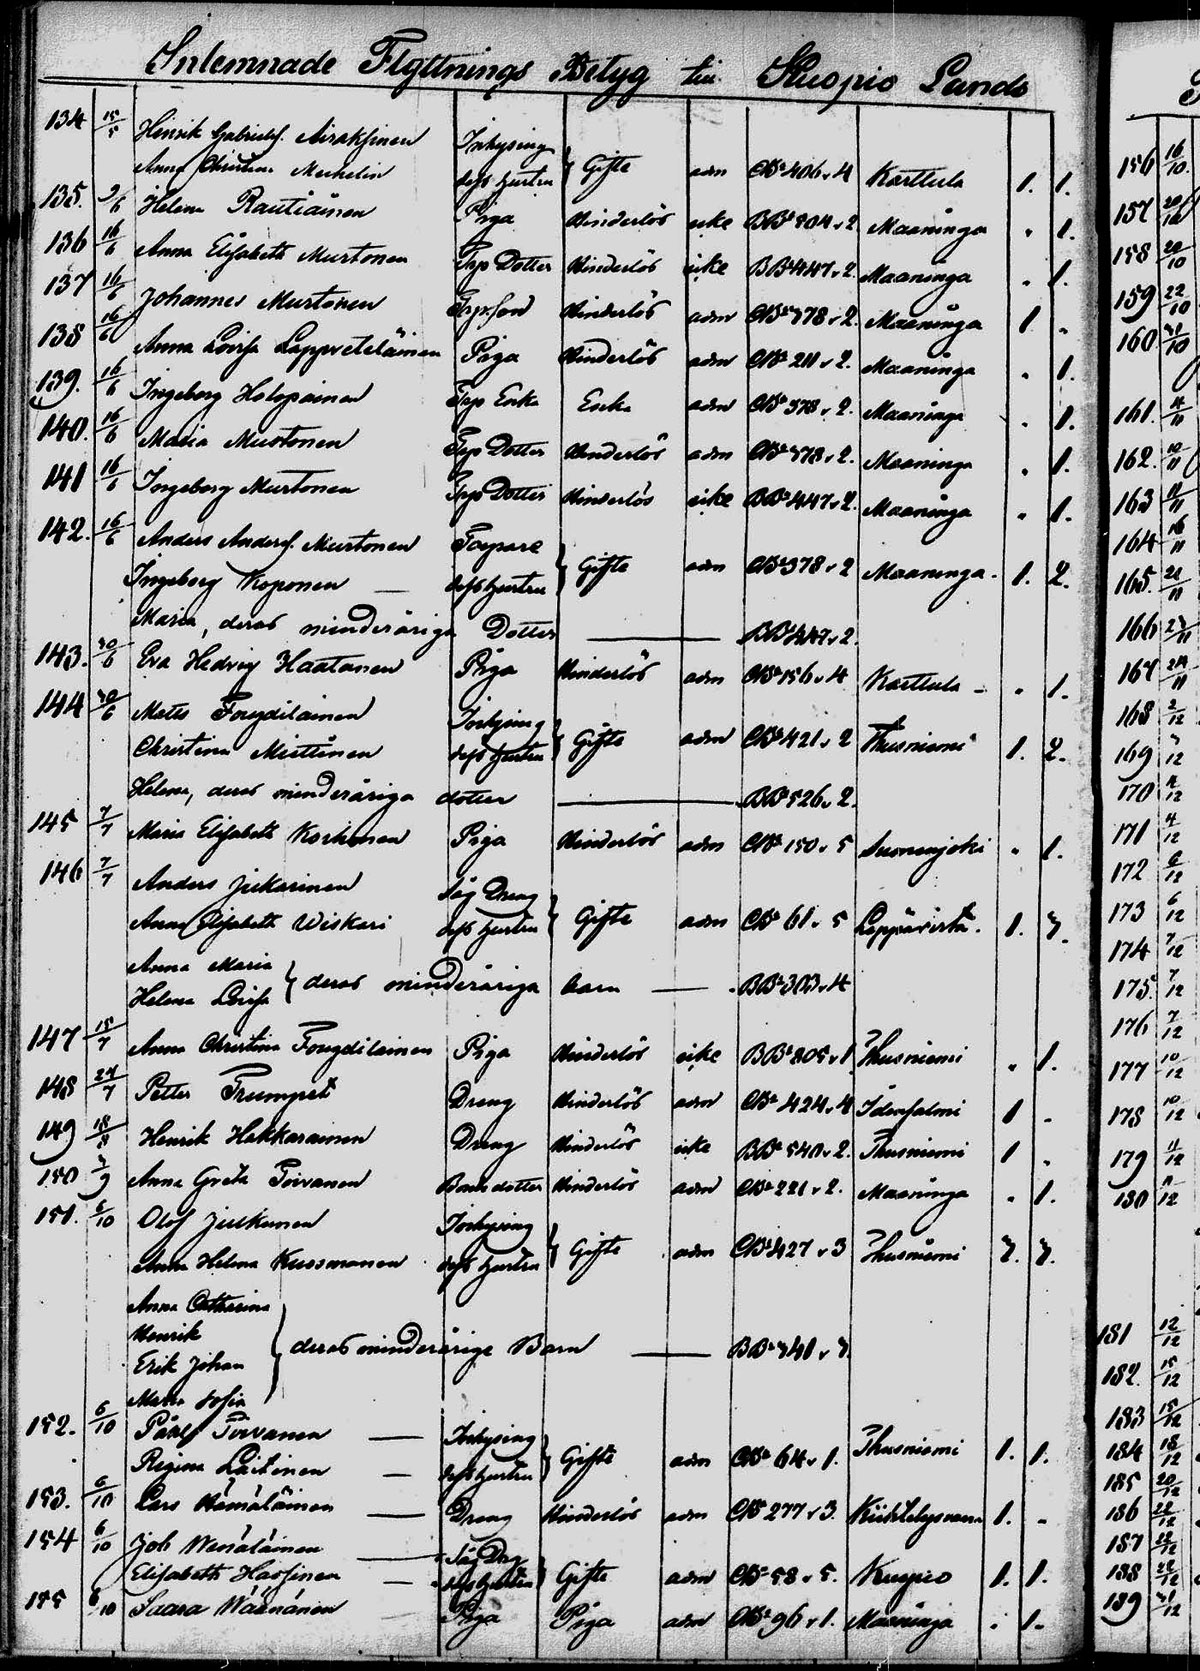 Inlemnade Flyttnings Betyg till Kuopio Lands
134 15/5 Henrik Gabrielss. Airaksinen Inhysing
Anna Christina Mechelin dess hustru } Gifte adm CB² 406 v 4 Karttula 1. 1.
135. 9/6 Helena Rautiainen Piga Hinderlös icke BB² 804 v 2 Maaninga . 1.
136 16/6 Anna Elisabeth Murtonen Trp Dotter Hinderlös icke BB² 447 v 2. Maaninga . 1.
137 16/6 Johannes Murtonen Trp. son Hinderlös adm CB² 378 v 2. Maaninga 1. .
138 16/6 Anna Lovisa Lappveteläinen Piga Hinderlös adm CB² 211 v 2. Maaninga . 1.
139. 16/6 Ingeborg Holopainen Trp Enka Enka adm CB² 378 v 2. Maaninga . 1.
140. 16/6 Maria Murtonen Trp Dotter Hinderlös adm CB² 378 v 2. Maaninga . 1.
141 16/6 Ingeborg Murtonen Trp Dotter Hinderlös icke BB² 447 v 2. Maaninga . 1.
142. 16/6 Anders Anderss. Murtonen Torpare
Ingeborg Koponen — dess hustru } Gifte adm CB² 378 v 2 Maaninga. 1. 2.
Maria, deras minderåriga Dotter — BB² 447 v 2.
143. 30/6 Eva Hedvig Haatanen Piga Hinderlös adm CB² 156 v 4 Karttula - . 1.
144 30/6 Matts Fougdilainen Inhysing
Christina Miettinen dess hustru } Gifte adm CB² 421 v 2 Thusniemi 1. 2.
Helena, deras minderåriga dotter — BB² 526 v 2.
145 7/7 Maria Elisabeth Korhonen Piga Hinderlös adm CB² 150 v 5 Suonenjoki . 1.
146 7/7 Anders Jukarinen Såg Dreng
Anna Elisabeth Wiskari dess hustru } Gifte adm CB² 61 v 5 Leppävirta. 1. 3.
Anna Maria
Helena Lovisa } deras minderåriga barn — BB² 303 v 4
147 15/7 Anna Christina Fougdilainen Piga Hinderlös icke BB² 805 v 1 Thusniemi . 1.
148 27/7 Petter Trumpet Dreng Hinderlös adm CB² 424 v 4 Idensalmi 1 -
149 18/8 Henrik Hakkarainen Dreng Hinderlös icke BB² 540 v 2. Thusniemi 1 .
150 3/9 Anna Greta Toivanen Bonde dotter Hinderlös adm CB² 221 v 2. Maaninga . 1.
151. 6/10 Olof Julkunen Inhysing
Anna Helena Kuosmanen dess hustru } Gifte adm CB² 427 v 3 Thusniemi 3. 3.
Anna Catharina
Henrik
Erik Johan } deras minderåriga Barn — BB² 341 v 3.
Maria Sofia
152. 6/10 Påhl Toivanen — Inhysing
Regina Laitinen — dess hustru } Gifte adm CB² 64 v 1. Thusniemi 1. 1.
153. 6/10 Lars Hämäläinen — Dreng Hinderlös adm CB² 277 v 3. Kiihtelysvaara 1. -
154 6/10 Job Wenäläinen — Såg Drg
Elisabeth Hassinen — dess hustru } Gifte adm CB² 58 v 5. Kuopio 1. 1.
155 6/10 Saara Wäänänen — Piga Piga adm CB² 96 v 1. Maaninga . 1.
156 16/10.
157 20/10
158 20/10
159 22/10
160 31/10
161. 4/11
162. 10/11
163 11/11
164 16/11
165. 21/11
166 23/11
167 24/11
168 2/12
169 3/12
170 4/12
171 4/12
172 6/12
173 6/12
174 7/12
175. 7/12
176 7/12
177 10/12
178 10/12
179 11/12
180 11/12
181 12/12
182. 15/12
183 15/12
184 18/12
185 20/12
186 22/12
187 22/12
188 22/12
189 31/12